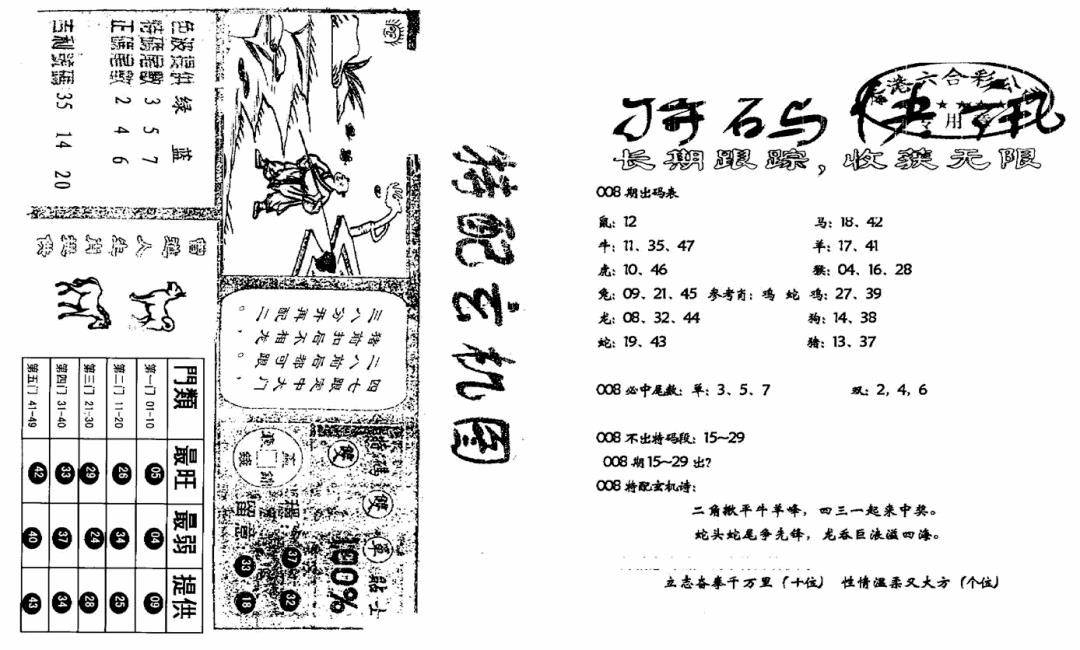 色波提供 绿 蓝
特碼尾數 3 5 7
正碼尾數 2 4 6
吉利號碼 35 14 20
曾道人生肖提供
特配玄机图
三八分开再配二。
特前扣后不相龙。
二八前后带可跟，
四七跟定中大门，
門類 最旺 最弱 提供
第一门 01-10 05 04 09
第二门 11-20 26 34 25
第三门 21-30 29 24 28
第四门 31-40 33 37 34
第五门 41-49 42 40 43
特碼
雙 雙 單
100%
貼士
留意
37 32
39 18
港六合彩
专用章
特码快讯
长期跟踪，收获无限
008 期出码表
鼠：12 马：18、42
牛：11、35、47 羊：17、41
虎：10、46 猴：04、16、28
兔：09、21、45 参考肖：鸡 蛇 鸡：27、39
龙：08、32、44 狗：14、38
蛇：19、43 猪：13、37
008 必中尾数：单：3、5、7 双：2，4，6
008 不出特码段：15~29
008 期 15~29 出？
008 特配玄机诗：
二角揪平牛羊峰，四三一起来中奖。
蛇头蛇尾争先锋，龙吞巨浪溢四海。
立志奋搴千万里（十位） 性情温柔又大方（个位）